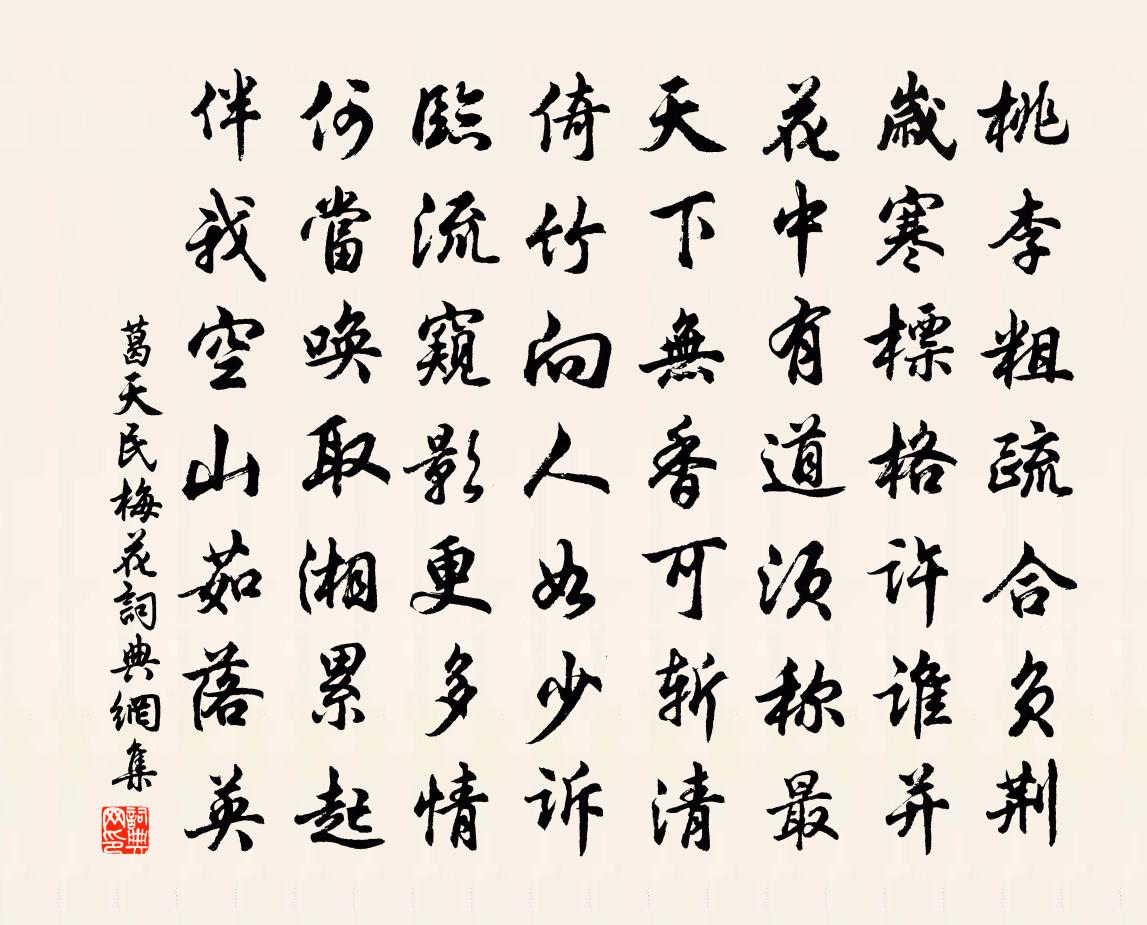 桃李粗疏合負荆
歲寒標格許誰并
花中有道須称最
天下無香可斯清
倚竹向人如少訴
臨流窺影更多情
何當喚取湘累起
伴我空山茹落英
葛天民梅花詞典網集
詞典网印